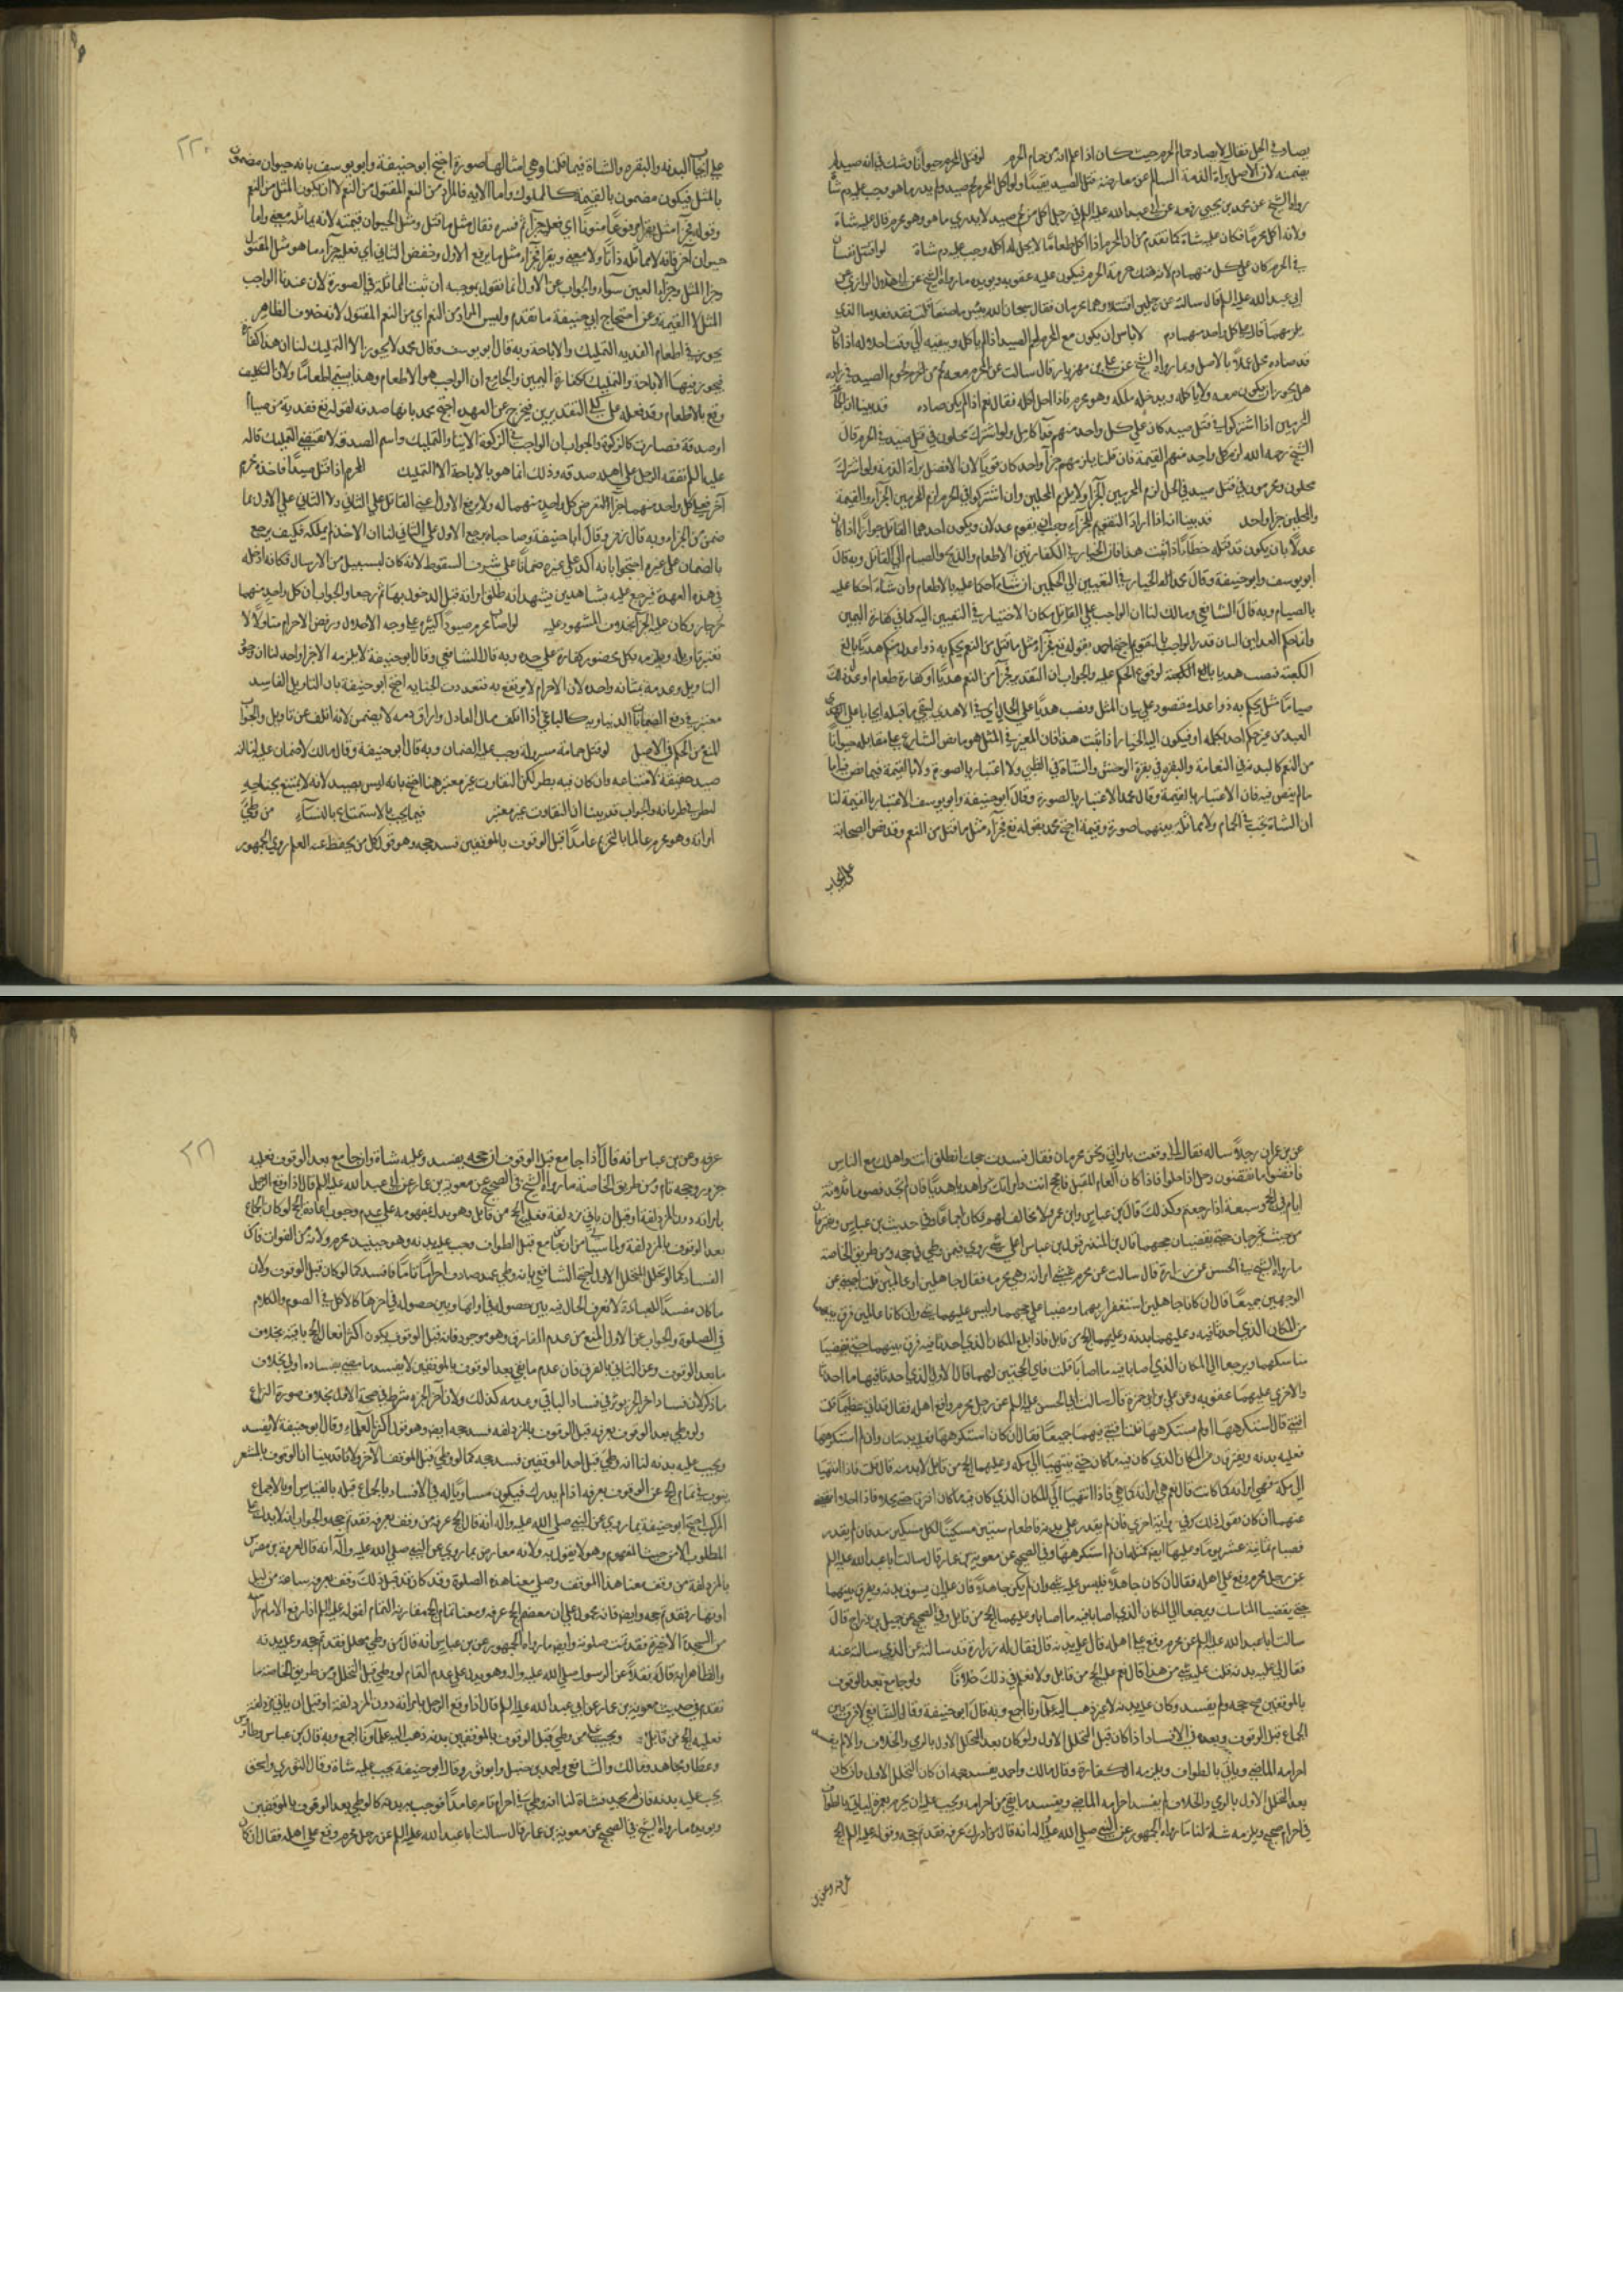 يصاد في الحل فقال لا يصاد حمام الحرم حيث كان اذا علم انه من حمام الحرم لو قتل المحرم حيوانا وشك في انه صيد لم
يضمنه لان الاصل براءة الذمة السالم عن معارضة قتل الصيد يقينا ولو اكل المحرم لحم صيد ولم يدر ما هو وجب عليه دم شاة
رواه الشيخ عن محمد بن يحيى رفعه عن ابي عبد الله عليه السلم في رجل اكل من لحم صيد لا يدري ما هو وهو محرم قال عليه شاة
ولانه اكل محرما فكان عليه شاة كما تقدم من ان المحرم اذا اكل طعاما لا يحل له اكله وجب عليه دم شاة لو اقتتل نفسان
في الحرم كان على كل منهما دم لانه هتك حرمة الحرم فيكون عليه عقوبة ويؤيده ما رواه الشيخ عن ابي هلال الرازي عن
ابي عبد الله عليه السلم قال سالته عن رجلين اقتتلا وهما محرمان فقال سبحان الله بئس ما صنعا قلت فقد فعلا ما الذي
يلزمهما قال على كل واحد منهما دم لا باس ان يكون مع المحرم لحم الصيد اذا لم ياكله ويبقيه الى وقت احلاله اذا كان
قد صاده محل عملا بالاصل وبما رواه الشيخ عن علي بن مهزيار قال سالت عن المحرم معه لحم من لحوم الصيد في زاده
هل يجوز ان يكون معه ولا ياكله ويدخله مكة وهو محرم فاذا احل اكله فقال نعم اذا لم يكن صاده قد بينا ان الجماعة
المحرمين اذا اشتركوا في قتل صيد كان على كل واحد منهم فداء كامل ولو اشترك محلون في قتل صيد في الحرم قال
الشيخ رحمه الله لزم كل واحد منهم القيمة فان قلنا يلزمهم جزاء واحد كان قويا لان الاصل براءة الذمة ولو اشترك
محلون ومحرمون في قتل صيد في الحل لزم المحرمين الجزاء ولا يلزم المحلين وان اشتركوا في الحرم لزم المحرمين الجزاء والقيمة
والمحلين جزاء واحد قد بينا انه اذا اراد التقويم للجزاء وجب ان يقوم عدلان ويكون احدهما القاتل جوازا اذا كان
عدلا بان يكون قد قتله خطأ اذا ثبت هذا فان الخيار في الكفارة بين الاطعام والذبح والصيام الى القاتل وبه قال
ابو يوسف وابو حنيفة وقال محمد الخيار في التعيين الى الحكمين ان شاءا حكما عليه بالاطعام وان شاءا حكما عليه
بالصيام وبه قال الشافعي ومالك لنا ان الواجب على القاتل فكان الاختيار في التعيين اليه كما في كفارة اليمين
وانما حكم العدلين لبيان قدر الواجب بالتقويم احتج محمد بقوله تع فجزاء مثل ما قتل من النعم يحكم به ذوا عدل منكم هديا بالغ
الكعبة فنصب هديا بالغ الكعبة لوقوع الحكم عليه والجواب ان التقدير فجزاء من النعم هديا او كفارة طعام او عدل ذلك
صياما مثل يحكم به ذوا عدل مقصور على بيان المثل ونصب هديا على الحال
من النعم كالبدنة في النعامة والبقرة في بقرة الوحش والشاة في الظبي ولا اعتبار بالصورة ولا بالقيمة فيما نص فيه اما
ما لم ينص فيه فان الاعتبار بالقيمة وقال محمد الاعتبار بالصورة وقال ابو حنيفة وابو يوسف الاعتبار بالقيمة لنا
ان الشاة تجب في الحمام ولا مماثلة بينهما صورة وقيمة احتج محمد بقوله تع فجزاء مثل ما قتل من النعم وقد نص الصحابة
على ايجاب
٢٢٠
على ايجاب البدنة والبقرة والشاة فيما قلنا وهي امثالها صورة احتج ابو حنيفة وابو يوسف بانه حيوان مضمون
بالمثل فيكون مضمون بالقيمة كالمملوك واما الاية فالمراد من النعم المقتول من النعم لا ان يكون المثل من النعم
وقوله فجزاء مثل يقرا مرفوعا منونا اي فعليه جزاء ثم فسره فقال مثل ما قتل ومثل الحيوان قيمته لانه يماثله معنى واما
حيوان آخر فانه لا يماثله ذاتا ولا معنى ويقرا فجزاء مثل ما يرفع الاول وخفض الثاني اي فعليه جزاء ما هو مثل المقتول
وجزاء المثل وجزاء العين سواء والجواب عن الاول انما نقول بوجبه ان ثبت المماثلة في الصورة لان عندنا الواجب
المثل لا القيمة وعن احتجاج ابي حنيفة ما تقدم وليس المراد من النعم اي من النعم المقتول لانه خلاف الظاهر
يجوز في اطعام الفدية التمليك والاباحة وبه قال ابو يوسف وقال محمد لا يجوز الا التمليك لنا ان هذا كفارة
فيجوز فيها الاباحة والتمليك ككفارة اليمين والجامع ان الواجب هو الاطعام وهذا يسمى اطعاما ولان التكليف
وقع بالاطعام وقد فعله على كلي التقديرين فيخرج عن العهدة احتج محمد بانها صدقة لقوله تع ففدية من صيام
او صدقة فصارت كالزكوة والجواب ان الواجب في الزكوة الايتاء والتمليك واسم الصدقة لا يقتضي التمليك قال
عليه السلم نفقة الرجل على اهله صدقة وذلك انما هو بالاباحة لا التمليك المحرم اذا قتل صيدا فاخذه محرم
آخر فعلى كل واحد منهما جزاء لتعرض كل واحد منهما له ولا يرجع الاول اعني القاتل على الثاني ولا الثاني على الاول بما
ضمن من الجزاء وبه قال زفر وقال ابو حنيفة وصاحباه يرجع الاول على الثاني لنا ان الاخذ لم يملكه فكيف يرجع
بالضمان على غيره احتجوا بانه اكد على غيره ضمانا على شرف السقوط لانه كان لسبيل من الارسال فكانه ادخله
في هذه العهدة فيرجع عليه بشاهدين يشهدانه طلق امراته قبل الدخول بها ثم رجعا والجواب ان كل واحد منهما
محرم جان وكان عليه الجزاء بخلاف المشهود عليه لو اصاب محرم صيودا كثيرة على وجه الاحلال ورفض الاحرام متاولا لا
نعتبر تاويله ويلزمه بكل محضور كفارة على حده وبه قال الشافعي وقال ابو حنيفة لا يلزمه الا جزاء واحد لنا ان وجود
التاويل وعدمه بمثابة واحدة لان الاحرام لا يرتفع به فتعددت الجناية احتج ابو حنيفة بان التاويل الفاسد
معتبر في دفع الضمانات الدنياوية كالباغي اذا اتلف مال العادل واراق دمه لا يضمن لانه اتلف عن تاويل والجواب
المنع من الحكم في الاصل لو قتل حمامة مسرولة وجب عليه الضمان وبه قال ابو حنيفة وقال مالك لا ضمان عليه لنا انه
صيد حقيقة لامتناعه وان كان فيه بطء لكن التفاوت غير معتبر هنا احتج بانه ليس بصيد لانه لا يمتنع بجناحيه
لبطء في طيرانه والجواب قد بينا ان التفاوت غير معتبر فيما يجب بالاستمتاع بالنساء من وطئ
امراته وهو محرم عالما بالتحريم عامدا قبل الوقوف بالموقفين فسد حجه وهو قول كل من يحفظ عنه العلم روى الجمهور
عن بن عمر ان رجلا ساله فقال اني وقعت بامراتي ونحن محرمان فقال فسدت حجك انطلق انت واهلك مع الناس
فاقضوا ما يقضون وحل اذا حلوا فاذا كان العام المقبل فاحجج انت وامراتك واهديا هديا فان لم تجد فصوما ثلاثة
ايام في الحج وسبعة اذا رجعتم وكذلك قال بن عباس وابن عمرو ولا مخالف لهم فكان اجماعا وفي حديث بن عباس ويتفرقان
من حيث يحرمان حتى يقضيان حجهما قال بن المنذر قول بن عباس اعلى شيء روي فيمن وطئ في حجه ومن طريق الخاصة
ما رواه الشيخ في الحسن عن زرارة قال سالت عن محرم غشي امراته وهي محرمة فقال جاهلين او عالمين قلت اجبني عن
الوجهين جميعا قال ان كانا جاهلين استغفرا ربهما ومضيا على حجهما وليس عليهما شيء وان كانا عالمين فرق بينهما
من المكان الذي احدثا فيه وعليهما بدنة وعليهما الحج من قابل فاذا بلغا المكان الذي احدثا فيه فرق بينهما حتى يقضيا
مناسكهما ويرجعا الى المكان الذي اصابا فيه ما اصابا قلت فاي الحجتين لهما قال الاولى التي احدثا فيها ما احدثا
والاخرى عليهما عقوبة وعن علي بن ابي حمزة قال سالت ابا الحسن عليه السلم عن رجل محرم واقع اهله فقال قد اتى عظيما قلت
افتني قال استكرهها او لم يستكرهها قلنا افتني فيهما جميعا فقال ان كان استكرهها فعليه بدنتان وان لم استكرهها
فعليه بدنة ويفترقان من المكان الذي كان فيه ما كان حتى ينتهيا الى مكة وعليهما الحج من قابل لا بد منه قال قلت فاذا انتهيا
الى مكة فهي امراته كما كانت قال نعم هي امراته كما هي فاذا انتهيا الى المكان الذي كان فيه ما كان افترقا حتى يحلا فاذا احلا انقضى
عنهما ان كان يقول ذلك وفي رواية اخرى فان لم يقدر على بدنة فاطعام ستين مسكينا لكل مسكين مد فان لم يقدر
فصيام ثمانية عشر يوما وعليها ايضا كمثله ان لم استكرهها وفي الصحيح عن معوية بن عمار قال سالت ابا عبد الله عليه السلم
عن رجل محرم وقع على اهله فقال ان كان جاهلا فليس عليه شيء وان لم يكن جاهلا فان عليه ان يسوق بدنة ويفرق بينهما
حتى يقضيا المناسك ويرجعا الى المكان الذي اصابا فيه ما اصابا وعليهما الحج من قابل وفي الصحيح عن جميل بن دراج قال
سالت ابا عبد الله عليه السلم عن محرم وقع على اهله قال عليه بدنة قال فقال له زرارة قد سالته عن الذي سالته عنه
فقال لي عليه بدنة قلت عليه شيء من هذا قال نعم عليه الحج من قابل ولا نعلم في ذلك خلافا ولو جامع بعد الوقوف
بالموقفين صح حجه ولم يفسد وكان عليه بدنة لا غير ذهب اليه علماؤنا اجمع وبه قال ابو حنيفة وقال الشافعي لا فرق بين
الجماع قبل الوقوف وبعده في الافساد اذا كان قبل التحلل الاول ولو كان بعد التحلل الاول بالرمي والحلاق والا لم يفسد
احرامه الماضي وياتي بالطواف ويلزمه الكفارة وقال مالك واحمد يفسد حجه ان كان التحلل الاول وان كان
بعد التحلل الاول بالرمي والحلاق لم يفسد احرامه الماضي ويفسد ما بقي من احرامه ويجب عليه ان يحرم بعمرة لياتي بالطواف
في احرام صحيح ويلزمه شاة لنا ما رواه الجمهور عن النبي صلى الله عليه وآله انه قال من ادرك عرفة فقد تم حجه وقوله عليه السلم الحج
عرفة وعن بن
٢٢١
عرفة وعن بن عباس انه قال اذا جامع قبل الوقوف ان حجه يفسد وعليه شاة وان جامع بعد الوقوف فعليه
جزور وحجه تام ومن طريق الخاصة ما رواه الشيخ في الصحيح عن معوية بن عمار عن ابي عبد الله عليه السلم قال اذا وقع الرجل
بامراته دون المزدلفة او قبل ان ياتي مزدلفة فعليه الحج من قابل وهو يدل بمفهومه على عدم وجوب اعادة الحج لو كان الجماع
بعد الوقوف بالمزدلفة ولما سياتي من ان من جامع قبل الطواف وجب عليه بدنة وهو حينئذ محرم ولانه امن الفوات فامن
الفساد كما لو تحلل التحلل الاول احتج الشافعي بانه وطي عمد صادف احراما تاما فافسده كما لو كان قبل الوقوف ولان
ما كان مفسدا للعبادة لا تفرق الحال فيه بين حصوله في اولها وبين حصوله في آخرها كالاكل في الصوم والكلام
في الصلوة والجواب عن الاول المنع من عدم الفارق وهو موجود فانه قبل الوقوف يكون اكثر افعال الحج باقية بخلاف
ما بعد الوقوف وعن الثاني بالفرق فان عدم ما بقي بعد الوقوف بالموقفين لا يفسد ما مضى بفساده اولى بخلاف
ما ذكر لان فساد آخر الجزء يؤثر في فساد الباقي وعدمه كذلك ولان آخر الجزء شرط في صحة الاول بخلاف صورة النزاع
ولو وطي بعد الوقوف بعرفة قبل الوقوف بالمزدلفة فسد حجه ايضا وهو قول اكثر العلماء وقال ابو حنيفة لا يفسد
ويجب عليه بدنة لنا انه وطي قبل احد الموقفين فسد حجه كما لو وطي قبل الموقف الآخر ولانا قد بينا ان الوقوف بالمشعر
ينوب في تمام الحج عن الوقوف بعرفة اذا لم يدرك فيكون مساويا له في الافساد بالجماع قبله بالقياس او بالاجماع
المركب احتج ابو حنيفة بما روي عن النبي صلى الله عليه وآله انه قال الحج عرفة من وقف بعرفة فقد تم حجه والجواب انه لا يدل على
المطلوب الا من حيث المفهوم وهو لا يقول به ولانه معارض بما روي عن النبي صلى الله عليه وآله انه قال لعروة بن مضرس
بالمزدلفة من وقف معنا هذا الموقف وصلى معنا هذه الصلوة وقد كان قد قبل ذلك وقف بعرفة ساعة من ليل
او نهار فقد تم حجه وايضا فانه محمول على ان معظم الحج عرفة ومعنا تمام الحج مقاربة التمام لقوله عليه السلم اذا رفع الامام راسه
من السجدة الاخيرة فقد تمت صلوته وايضا ما رواه الجمهور عن بن عباس انه قال من وطي محلل فقد تم حجه وعليه بدنة
والظاهر انه قاله نقلا عن الرسول صلى الله عليه وآله وهو يدل على عدم التمام لو وطي قبل التحلل ومن طريق الخاصة ما
تقدم في حديث معوية بن عمار عن ابي عبد الله عليه السلم قال اذا وقع الرجل بامراته دون المزدلفة او قبل ان ياتي مزدلفة
فعليه الحج من قابل ويجب على من وطي قبل الوقوف بالموقفين بدنة ذهب اليه علماؤنا اجمع وبه قال بن عباس وطاوس
وعطا ومجاهد ومالك والشافعي واحمد بن حنبل وابو ثور وقال ابو حنيفة يجب عليه شاة وقال الثوري واسحق
يجب عليه بدنة فان لم يجد فشاة لنا انه وطي في احرام تام عامدا فوجب به بدنة كما لو وطي بعد الوقوف بالموقفين
ويؤيده ما رواه الشيخ في الصحيح عن معوية بن عمار قال سالت ابا عبد الله عليه السلم عن رجل محرم وقع على اهله فقال ان كان